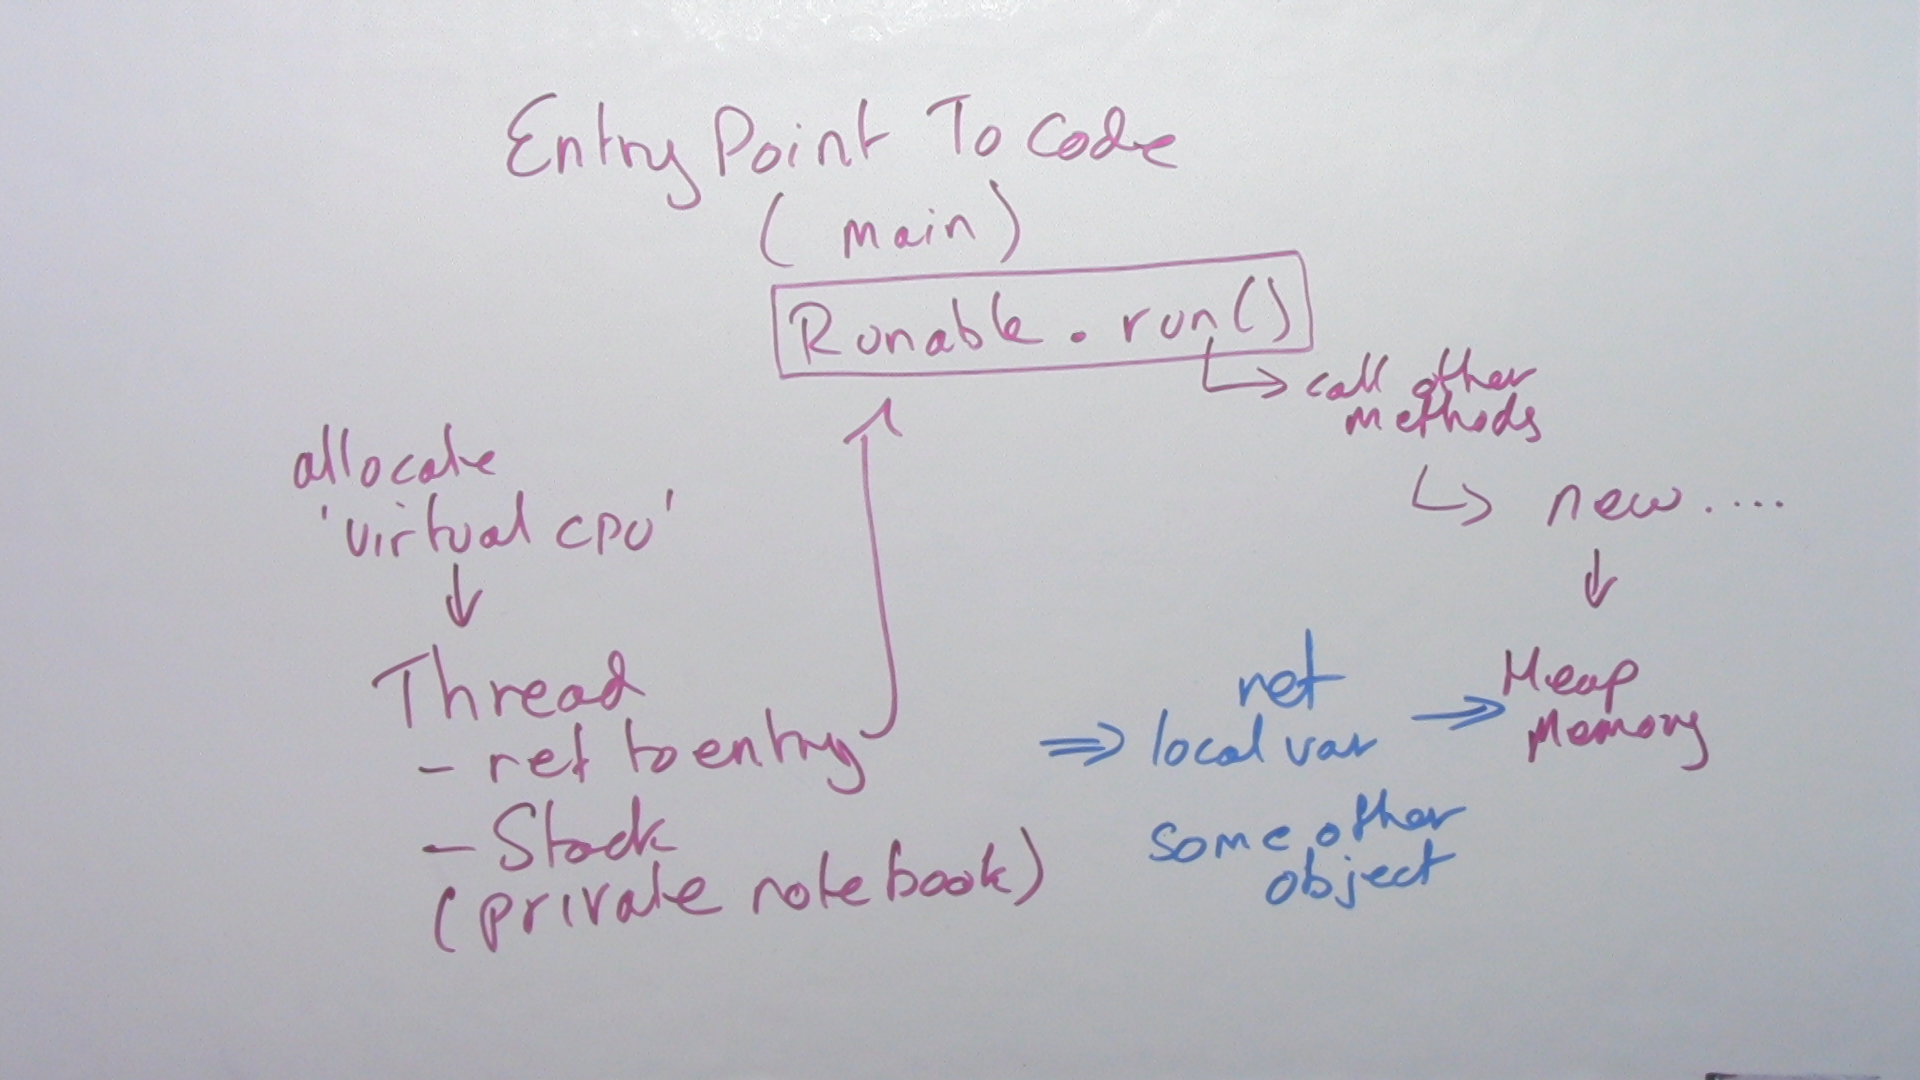 Entry Point To Code
(main)
Runable.run()
call other
methods
new....
Heap
Memory
allocate
'virtual CPU'
Thread
- ref to entry
- Stack
(private notebook)
ref
local var
some other
object